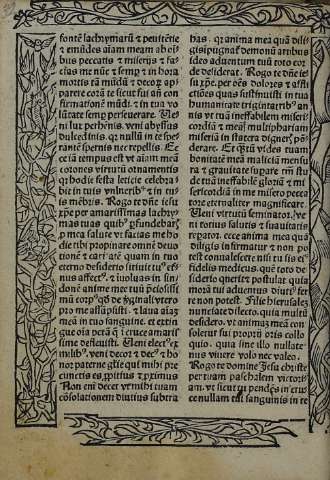 fontē lachrymarū & penitētie
& emūdes aiam meam ab oī
bus peccatis & miseriis & fa
cias me nūc & semp & in hora
mortis tā mūdū & decor̄ ap
parere corā te sicut fui in con
firmatione mūdi. & in tua vo
lūtate semp perseuerare. Ve
ni lux perhēnis. veni abyssus
dulcedinis. qr nulli in te spe
rantē spernis nec repellis. Ec
ce iā tempus est vt aiam meā
exornes virtutū ornamentis
qr hodie festa leticie celebra
bit in tuis vulneribᵉ & in tu
is mēbris. Rogo te dn̄e iesu
xp̄e per amarissimas lachry
mas tuas quibᵉ pfundebar
mea salute vt facias me hodie
tibi propinare omnē deuo
tionē & cari atē quam in tuo
eterno desiderio
affectᵉ. & inuoluas in sin
donē anime mee tuū pciosissi
mū corpᵉ
pro me assūpsisti. & laua aiaz
mea in tuo sanguine. et extin
gue oīa pctā qr in cruce amaris
sime defleuisti. Veni elect ex
milibᵉ. veni decor & decᵉ & ho
nor paterne glie qui mihi pre
cunctis es xp̄itius & primus
Non em̄ decet vt mihi tuam
cōsolationem diutius subtra
has. qr anima mea quā di
ligis ipugnat demonū artibus
ides aduentum tuū toto cor
de desiderat. Rogo te dn̄e ie
su xp̄e. per oēs dolores & affli
ctiōes quas sustinuisti in tua
humanitate trigintatribᵉ an
nis vt tuā ineffabilem miseri
cordiā & meā multiphariam
miseriā in statera digneris pō
derare. Et
bonitatē meā maliciā mensu
ra & grauitate supare
de tua ineffabilē gloriā & mi
sericordiā in me misero pecca
tore eternaliter magnificare.
Veni virtutū seminator, ve
ni totius salutis & suauitatis
reparator. ecce anima mea quā
diligis infirmatur & non po
test conualescere nisi tu sis ei
fidelis medicus. que toto de
siderio querit & postulat quia
morā tui aduentus diuti suffer
re non potest. Filie hierusalez
nunciate dilecto. quia multū
desidero. vt animaz meā con
soletur sui proprii oris collo
quio. quia sine illo nullate
nus viuere volo nec valeo.
Rogo te domine Iesu christe
per tuam paschalem victori
am. vt sicut tu pendēs in cruz
ce nullam tui sanguinis in te